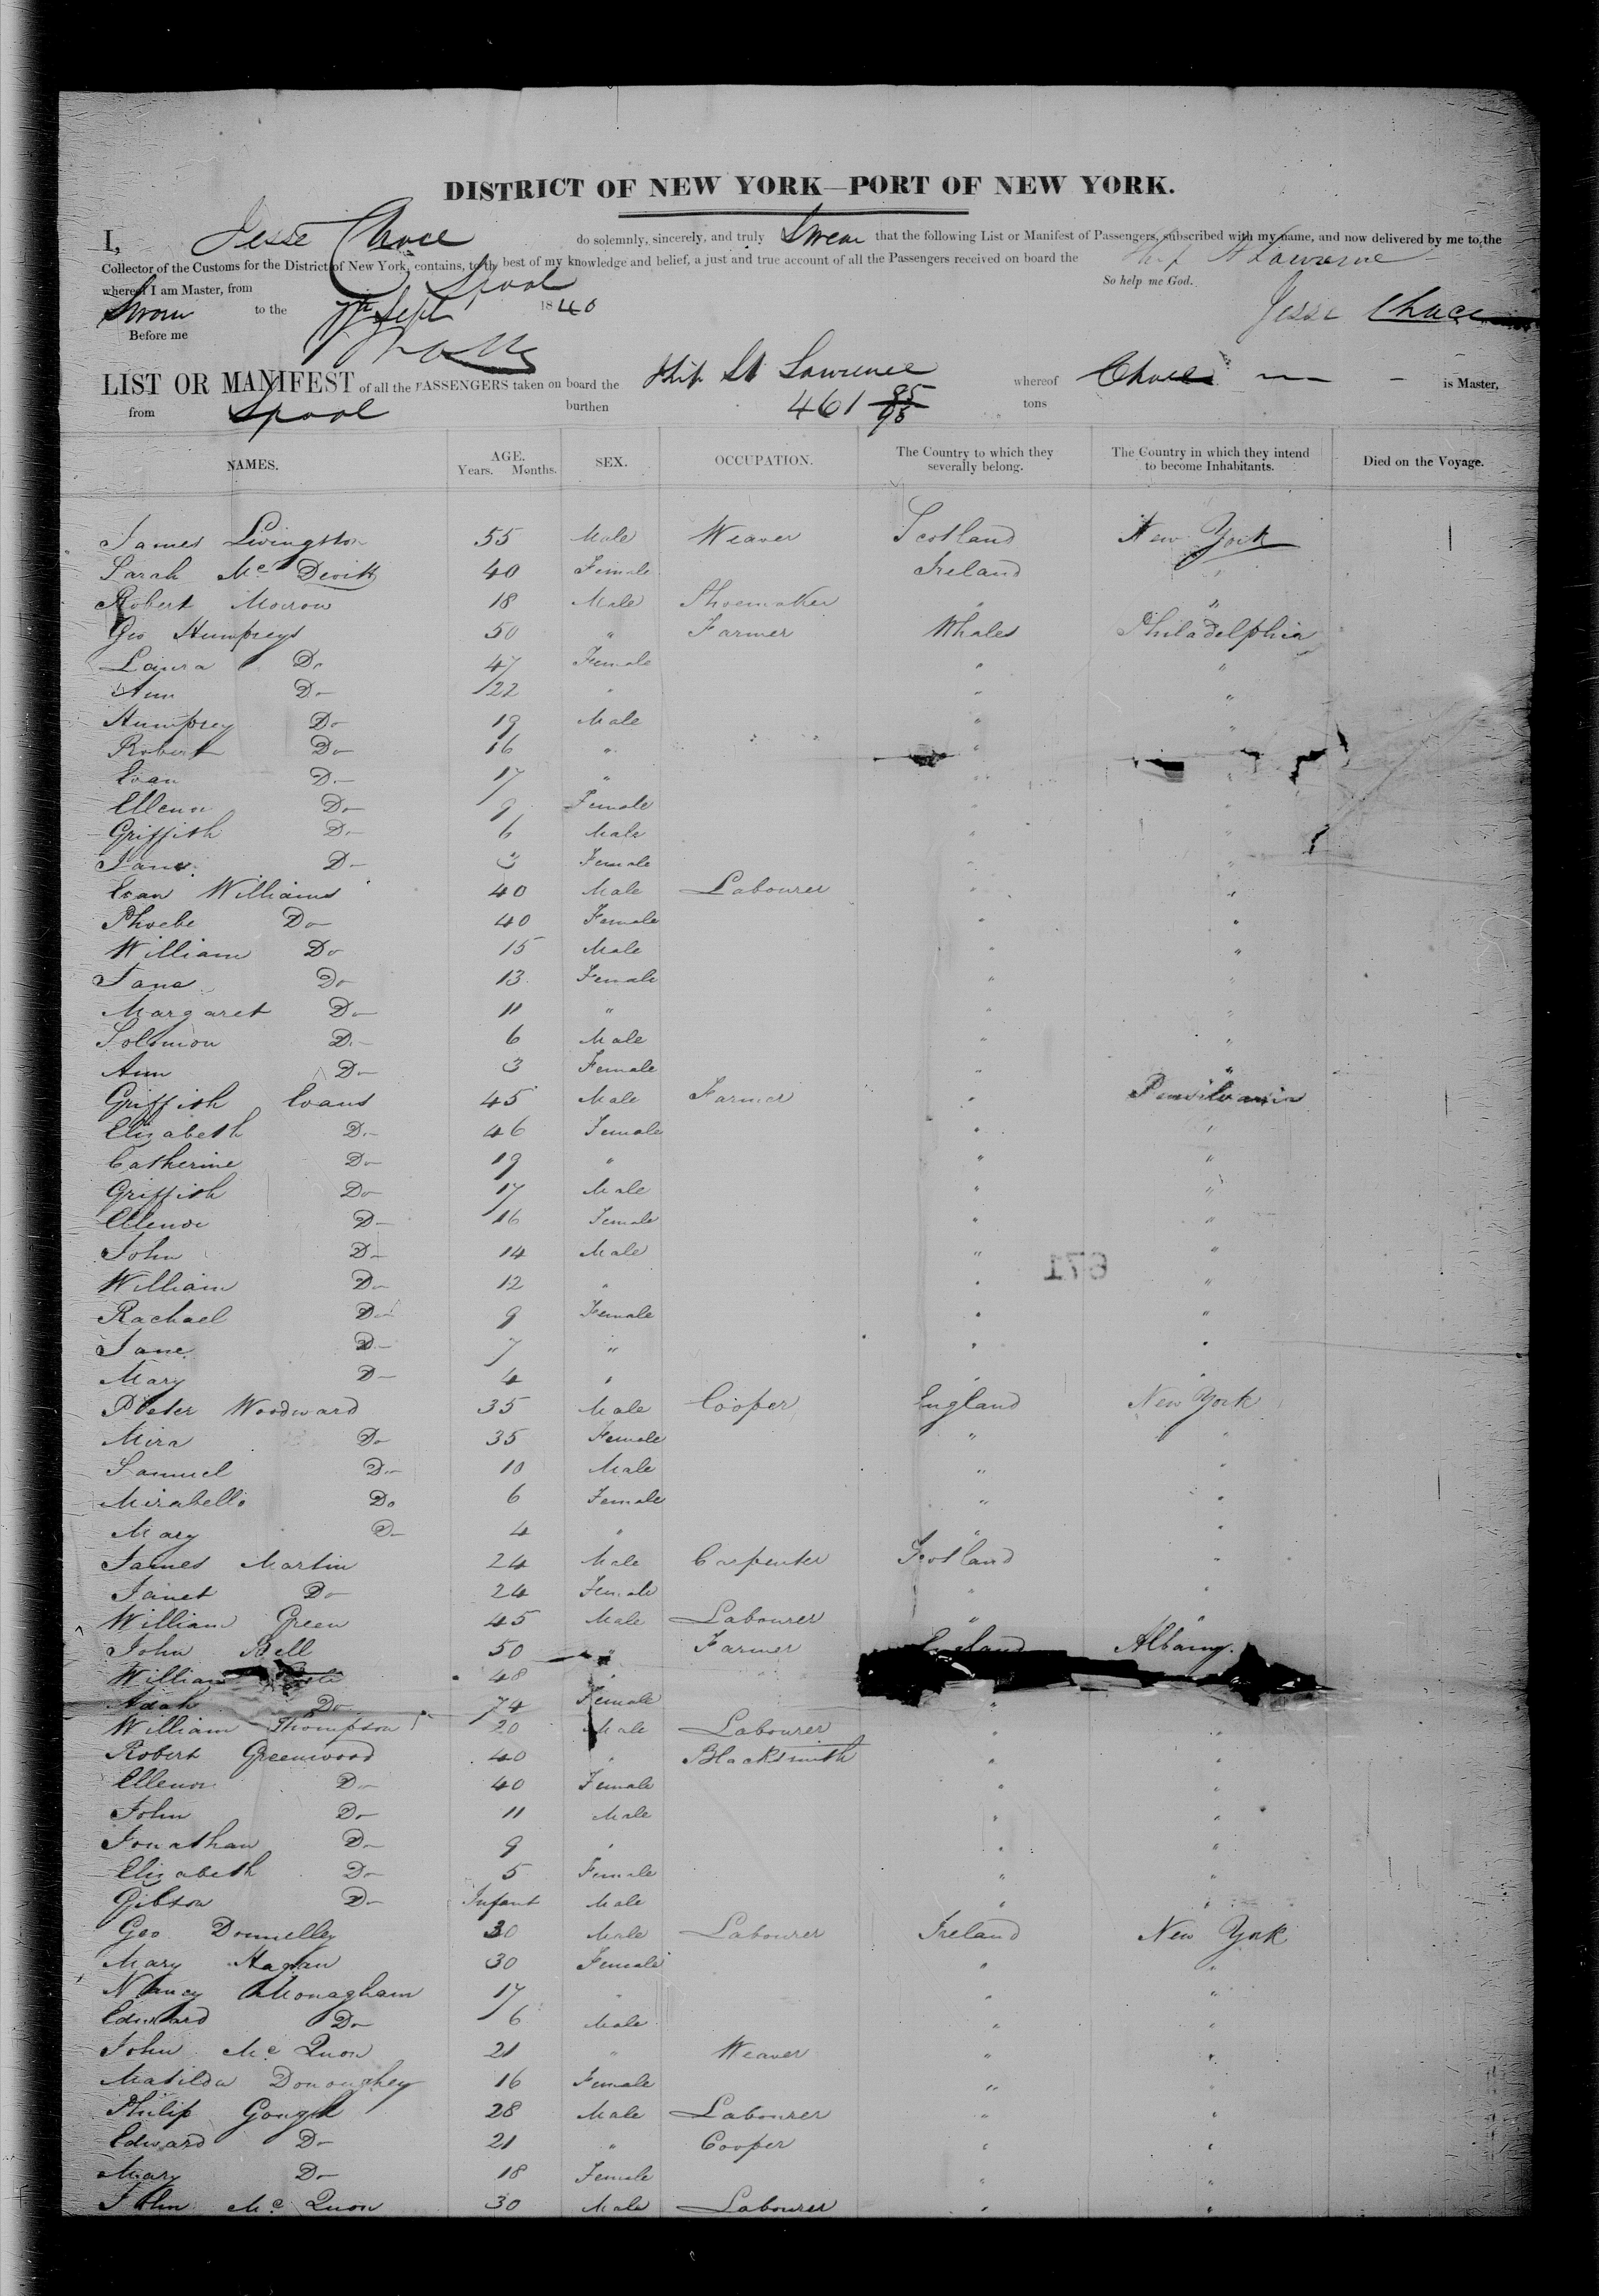 DISTRICT OF NEW YORK—PORT OF NEW YORK.
I, Jesse Chace do solemnly, sincerely, and truly Swear that the following List or Manifest of Passengers, subscribed with my name, and now delivered by me to the
Collector of the Customs for the District of New York, contains, to the best of my knowledge and belief, a just and true account of all the Passengers received on board the Ship St Lawrence
whereof I am Master, from Lpool So help me God.
Sworn to the 7th Sept 1840 Jesse Chace
Before me
LIST OR MANIFEST of all the PASSENGERS taken on board the Ship St Lawrence whereof Chace is Master,
from Lpool burthen 461 85/95 tons
NAMES. AGE. Years. Months. SEX. OCCUPATION. The Country to which they severally belong. The Country in which they intend to become Inhabitants. Died on the Voyage.
James Livingston 55 Male Weaver Scotland New York
Sarah Mc Devitt 40 Female Ireland "
Robert Morrow 18 Male Shoemaker " "
Geo Humpreys 50 " Farmer Whales Philadelphia
Laura Do 47 Female " "
Ann Do 22 " " "
Humfrey Do 19 Male " "
Robert Do 16 " "
Evan Do 17 " " "
Ellenor Do 9 Female " "
Griffith Do 6 Male " "
Jane Do 3 Female " "
Evan Williams 40 Male Labourer " "
Phoebe Do 40 Female " "
William Do 15 Male " "
Jane Do 13 Female " "
Margaret Do 11 " " "
Solomon Do 6 Male " "
Ann Do 3 Female " "
Griffith Evans 45 Male Farmer " Pensilvania
Elizabeth Do 46 Female " "
Catherine Do 19 " " "
Griffith Do 17 Male " "
Ellenor Do 16 Female " "
John Do 14 Male " "
671
William Do 12 " " "
Rachael Do 9 Female " "
Jane Do 7 " " "
Mary Do 4 " " "
Peter Woodward 35 Male Cooper England New York
Mira Do 35 Female " "
Samuel Do 10 Male " "
Mirabella Do 6 Female " "
Mary Do 4 " " "
James Martin 24 Male Carpenter Scotland "
Janet Do 24 Female " "
William Green 45 Male Labourer " "
John Bell 50 " Farmer England Albany.
William 48 "
Adah Do 74 Female "
William Thompson 20 Male Labourer " "
Robert Greenwood 40 " Blacksmith " "
Ellenor Do 40 Female " "
John Do 11 Male " "
Jonathan Do 9 " " "
Elizabeth Do 5 Female " "
Gibson Do Infant Male " "
Geo Donnelley 30 Male Labourer Ireland New York
Mary Hagan 30 Female " "
Nancy Monagham 17 " " "
Edward Do 6 Male " "
John Mc Quon 21 " Weaver " "
Matilda Donoughey 16 Female " "
Philip Gough 28 Male Labourer " "
Edward Do 21 " Cooper " "
Mary Do 18 Female " "
John Mc Quon 30 Male Labourer " "